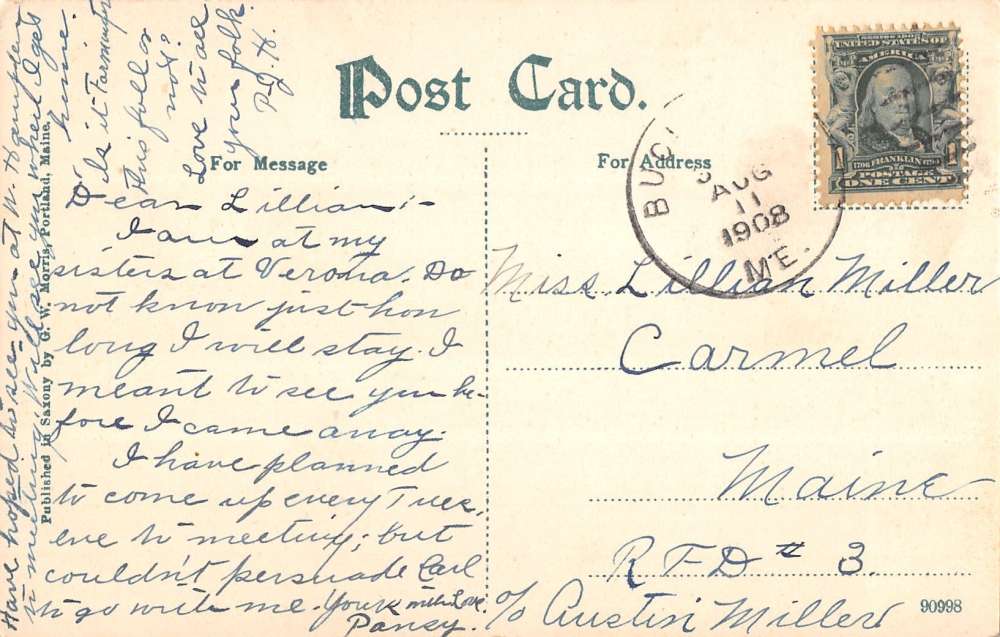 Post Card.
For Message
For Address
Dear Lillian:-
I am at my
sisters at Verona. Do
not know just how
long I will stay. I
meant to see you be-
fore I came away.
I have planned
to come up every Tues.
eve to meeting; but
couldn't persuade Carl
to go with me. Yours with Love.
Pansy.
Have hoped to see you at W. Hampden
to meeting. Will see you when I get
home.
Is it Farmington
this fall or
not?
Love to all
your folk.
P. J. H.
Published in Saxony by G. W. Morris, Portland, Maine.
UNITED STATES OF
AMERICA
1706 FRANKLIN 1790
POSTAGE
1 ONE CENT 1
AUG
11
1908
ME.
Miss Lillian Miller
Carmel
Maine
RFD # 3.
c/o Austin Miller
90998